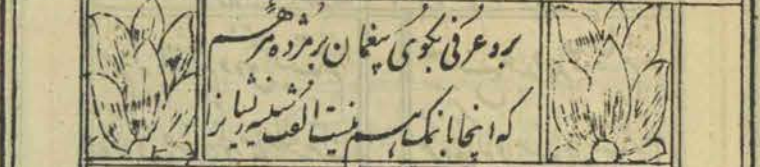 برو عرفی بکوی بیغمان بر مژده مرهم
که اینجا با نمک هم نیست الفت سینه ریشانرا